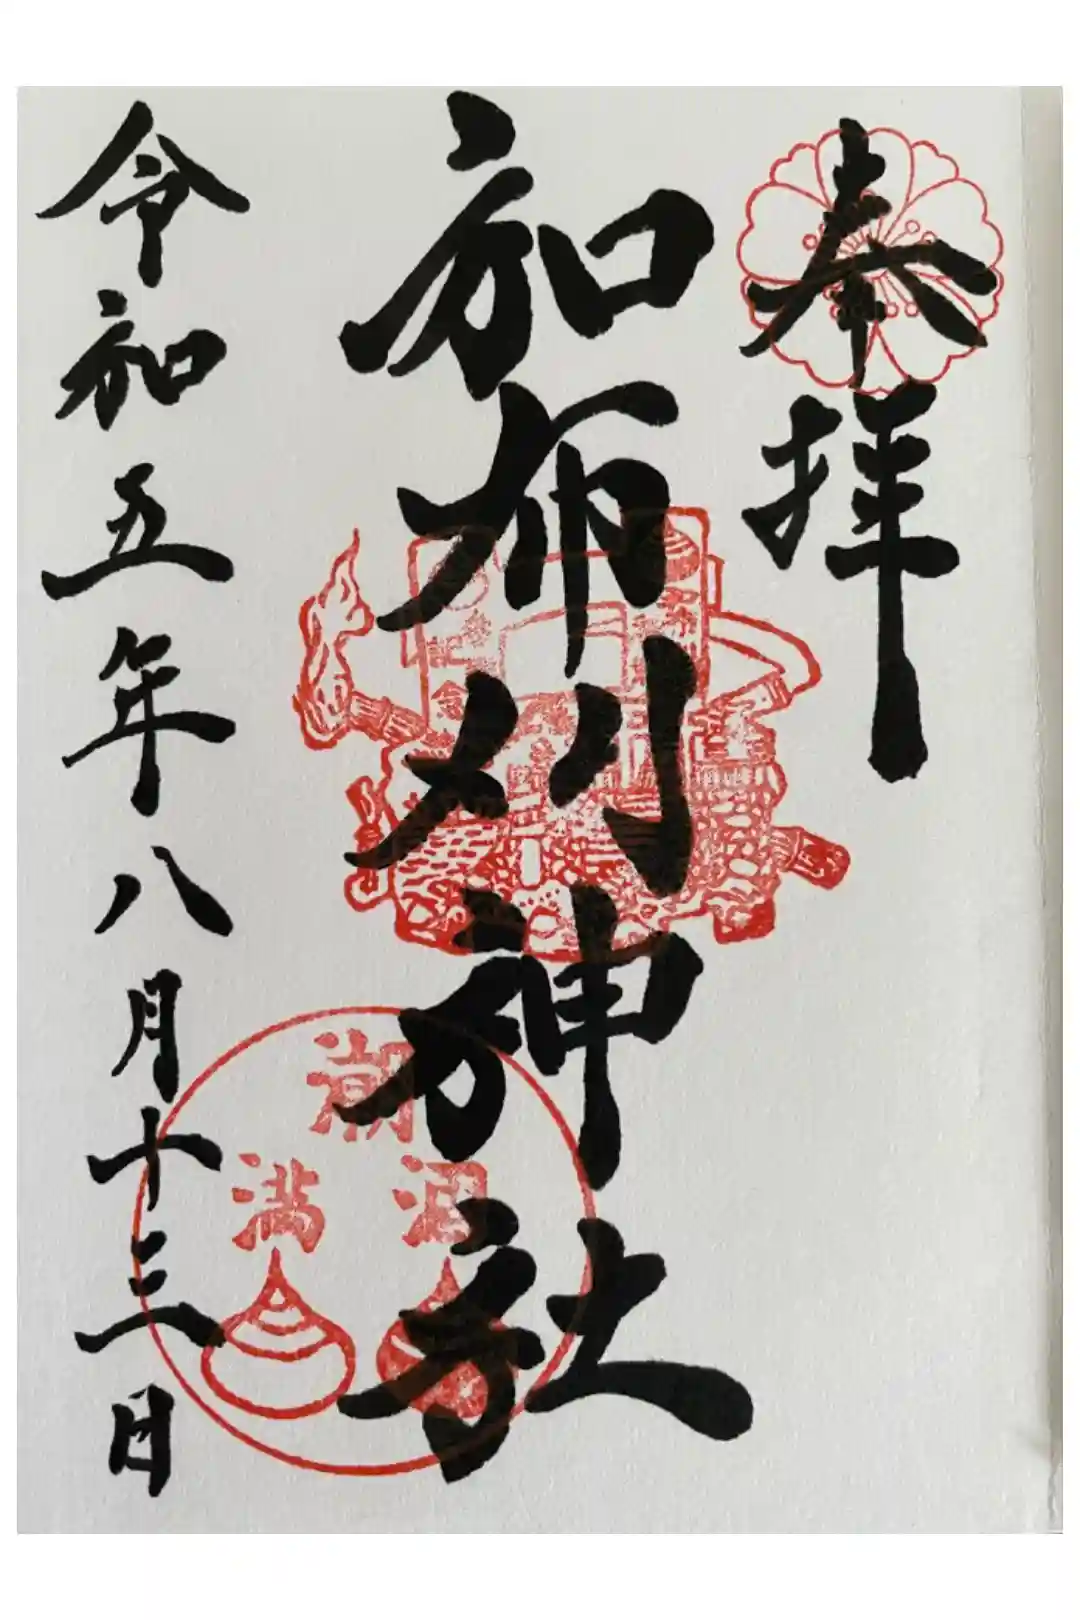 奉拝
和布刈神社
令和五年八月十三日
潮
涸
満